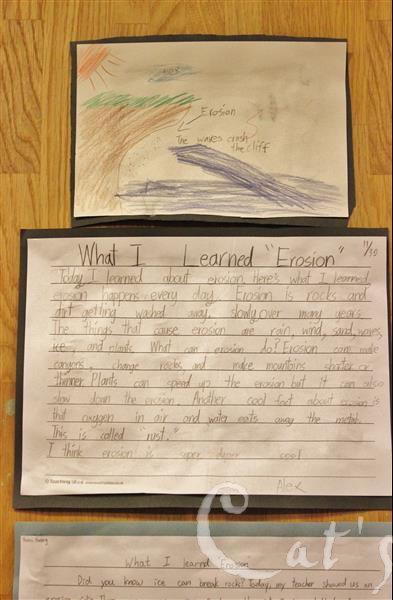 Erosion
The waves crash
the cliff
What I Learned "Erosion"
11/30
Today I learned about erosion. Here's what I learned,
erosion happens every day. Erosion is rocks and
dirt getting washed away, slowly over many years.
The things that cause erosion are rain, wind, sand, waves,
ice and plants. What can erosion do? Erosion can make
canyons, change rocks, and make mountains shorter or
thinner. Plants can speed up the erosion but it can also
slow down the erosion. Another cool fact about erosion is
that oxygen in air and water eats away the metal.
This is called "rust."
I think erosion is super duper cool
Alex
Cat's
What I learnd Erosion
Did you know ice can break rocks? Today, my teacher showed us an